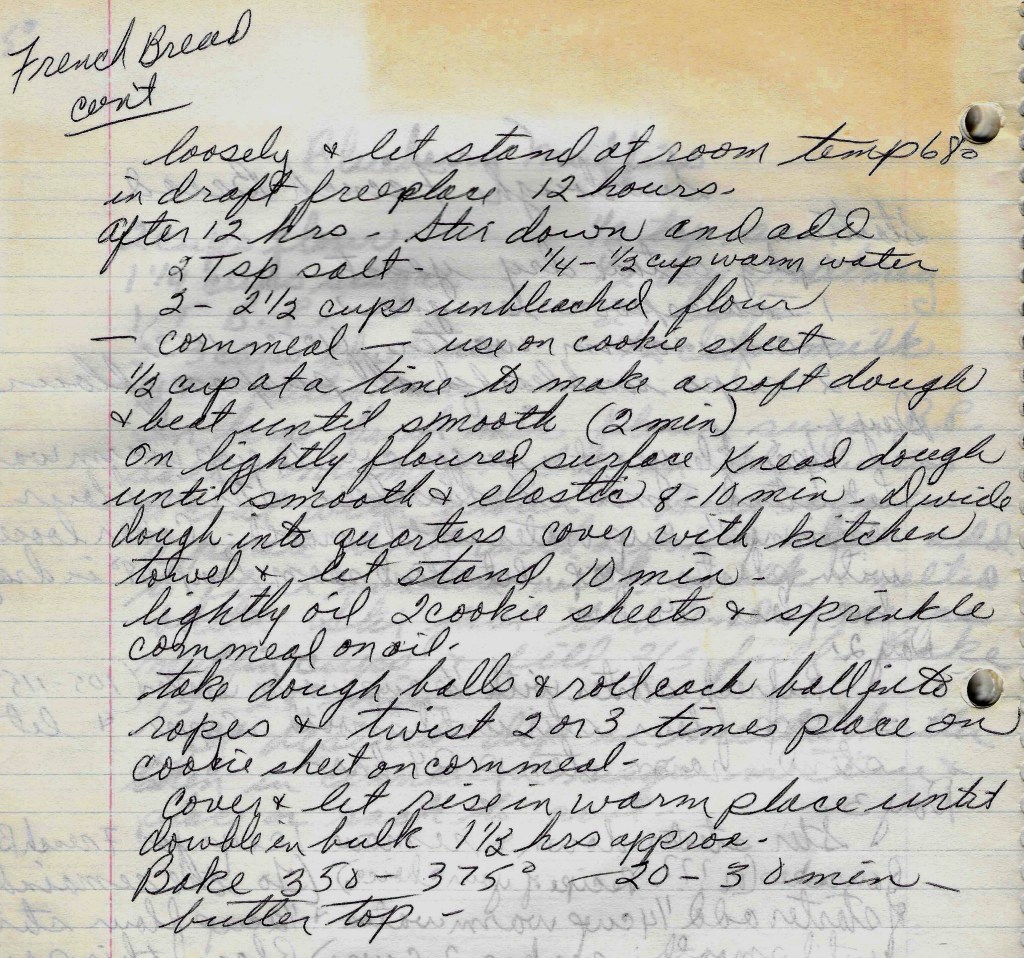 French Bread
con't
loosely & let stand at room temp 68°
in draft free place 12 hours.
after 12 hrs - Stir down and add
2 Tsp salt - 1/4 - 1/2 cup warm water
2 - 2 1/2 cups unbleached flour
- cornmeal - use on cookie sheet
1/2 cup at a time to make a soft dough
& beat until smooth (2 min)
On lightly floured surface Knead dough
until smooth & elastic 8-10 min - Divide
dough into quarters cover with kitchen
towel & let stand 10 min -
lightly oil 2 cookie sheets & sprinkle
cornmeal on oil.
take dough balls & roll each ball into
ropes & twist 2 or 3 times place on
cookie sheet on cornmeal -
cover & let rise in warm place until
double in bulk 1 1/2 hrs approx -
Bake 350 - 375° - 20 - 30 min -
butter top -